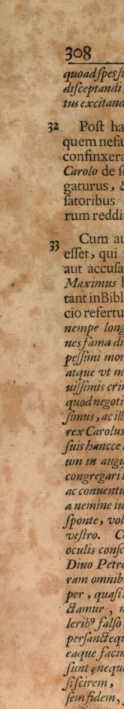 308
quoad spes s
disceptandi,
tus excitand
32 Post ha
quem nefa
confinxera
Carolo de s
gaturus, &
satoribus
rum reddi
33 Cum au
esset, qui
aut accusa
Maximus
tant in Bibl
cio refertu
nempe long
nes fama di
pessimi mor
atque vt m
uissimis crim
quod negoti
simus, ac ill
rex Carolus
suis hancce
um in augu
congregari
ac conuentu
a nemine iu
sponte, vol
vestro. C
oculis consc
Diuo Petro
ram omnib
per, quasi
ctamur, n
lerib⁹ falso
persanctequ
eaque facin
sunt, neque
sciscirem,
sem fidem,